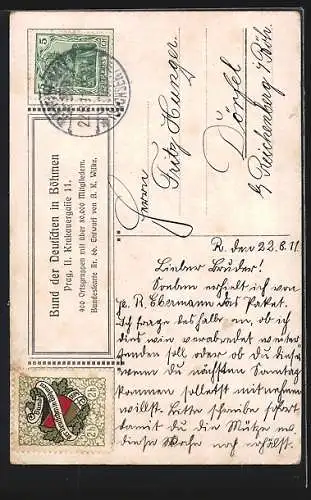 Bund der Deutschen in Böhmen
Prag, II. Krakauergasse 11.
400 Ortsgruppen mit über 80.000 Mitgliedern.
Bundeskarte Nr. 66. Entwurf von A. K. Wilke.
Herrn
Fritz Hunger
Dörfel
b/ Reichenberg i/Böh.
R. den 22.8.11
Lieber Bruder!
Soeben erhielt ich von
R. Ebermann das Paket.
Ich frage deshalb an, ob ich
dies wem verabredet weiter
senden soll oder ob Du dieses
wenn Du nächsten Sonntag
kommen solltest mitnehmen
willst. Bitte schreibe sofort
damit Du die Mütze wo
diese Woche noch erhälst.
5